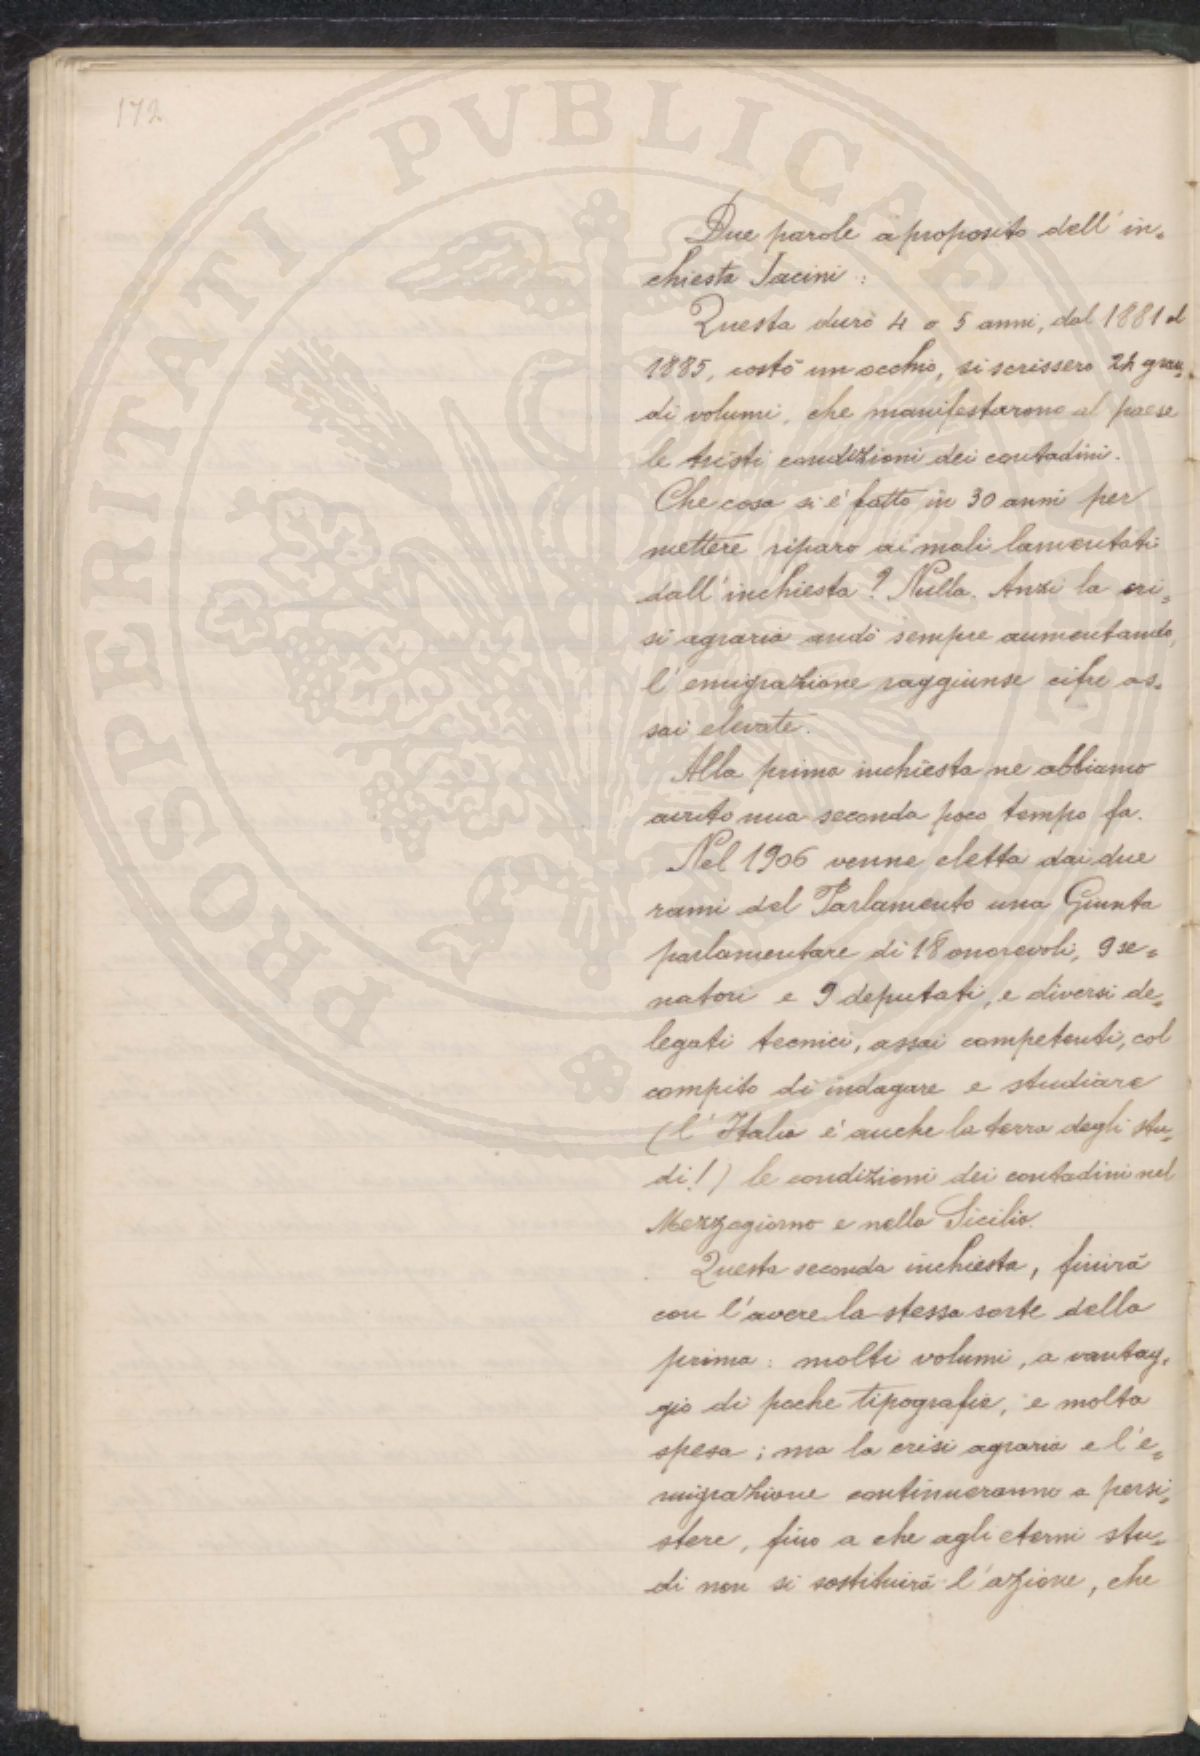 172
PROSPERITATI PVBLICAE
Due parole a proposito dell'in=
chiesta Jacini:
Questa durò 4 o 5 anni, dal 1881 al
1885, costò un occhio, si scrissero 24 gran=
di volumi, che manifestarono al paese
le tristi condizioni dei contadini.
Che cosa si è fatto in 30 anni per
mettere riparo ai mali lamentati
dall'inchiesta? Nulla. Anzi la cri=
si agraria andò sempre aumentando,
l'emigrazione raggiunse cifre as=
sai elevate.
Alla prima inchiesta ne abbiamo
avuto una seconda poco tempo fa.
Nel 1906 venne eletta dai due
rami del Parlamento una Giunta
parlamentare di 18 onorevoli, 9 se=
natori e 9 deputati, e diversi de=
legati tecnici, assai competenti, col
compito di indagare e studiare
(l'Italia è anche la terra degli stu=
di!) le condizioni dei contadini nel
Mezzogiorno e nella Sicilia.
Questa seconda inchiesta, finirà
con l'avere la stessa sorte della
prima: molti volumi, a vantag=
gio di poche tipografie, e molta
spesa; ma la crisi agraria e l'e=
migrazione continueranno a persi=
stere, fino a che agli eterni stu=
di non si sostituirà l'azione, che